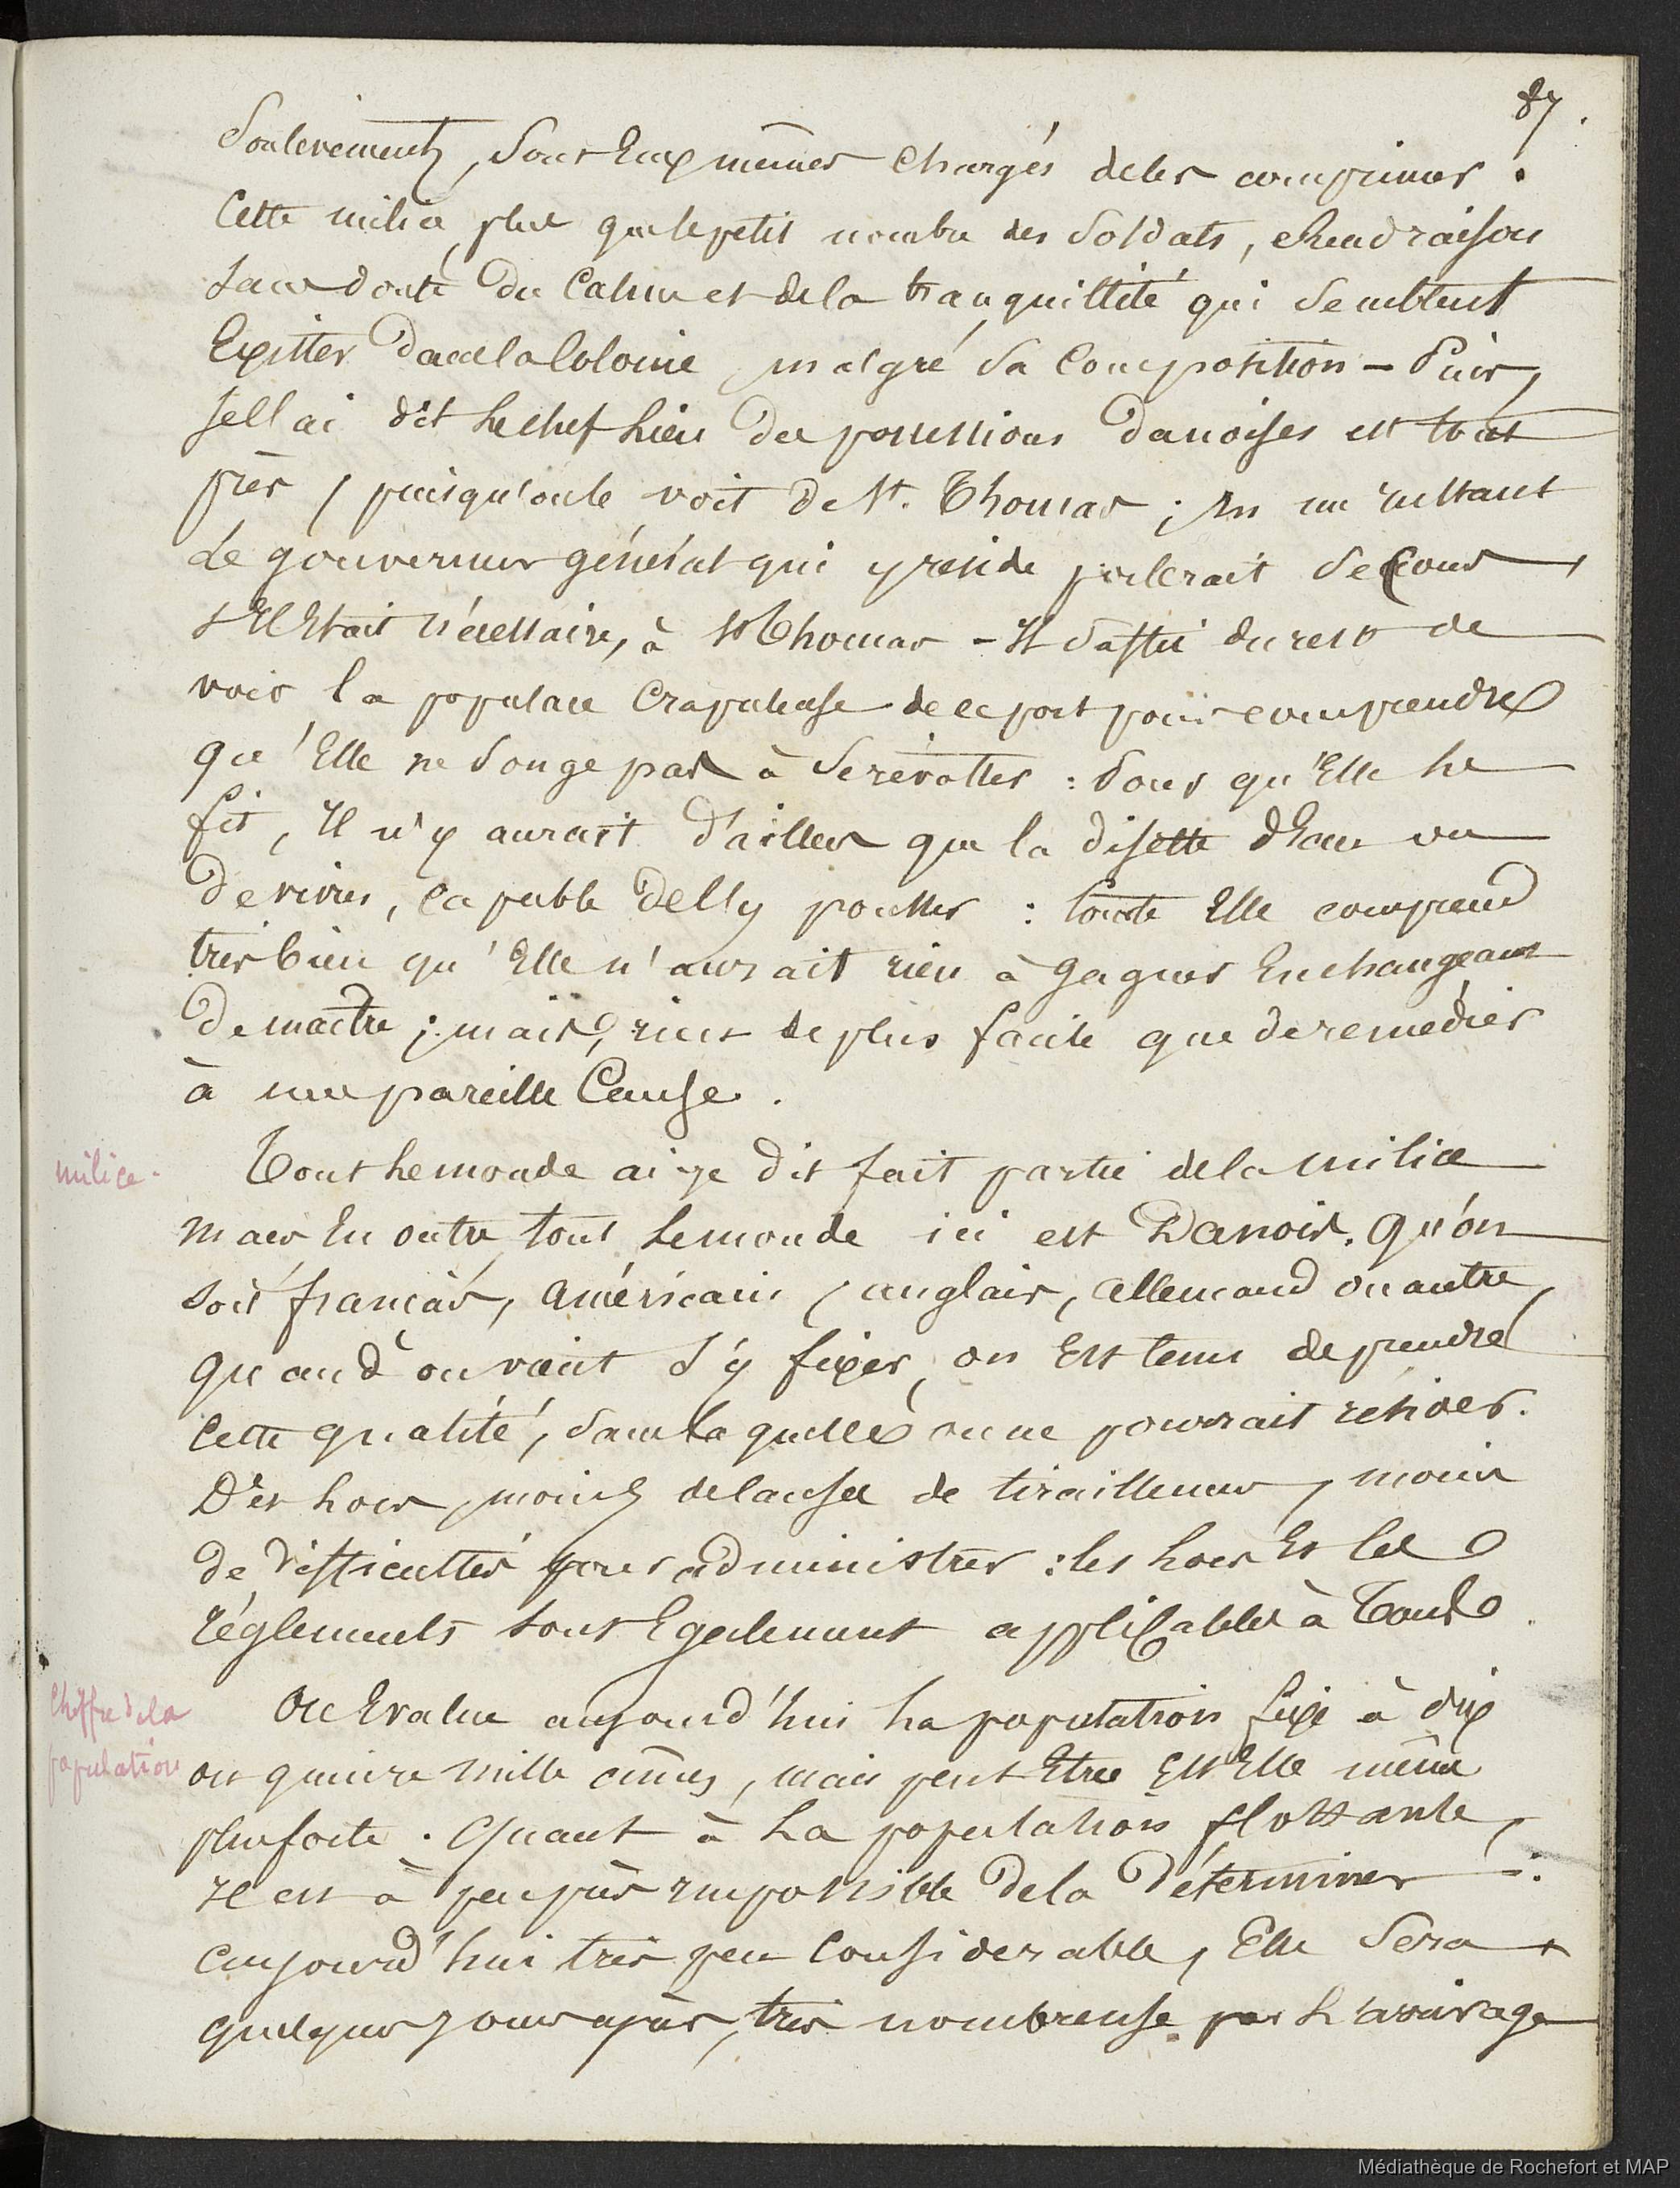 87.
Soulevements, sont Eux mêmes chargés de les comprimer.
Cette milice, plus que le petit nombre des Soldats, Rend raison
sans doute du Calme et de la tranquillité qui Semblent
Exister dans la Colonie malgré Sa Composition – Puis,
Je l'ai dit le chef lieu des possessions danoises est tout
près, puisqu'on le voit de St. Thomas; En un instant
Le gouverneur général qui y reside porterait Secours
s'Il Etait nécessaire, à St Thomas – Il Suffit du reste de
voir la populace Crapuleuse de ce port pour comprendre
qu'Elle ne Songe pas à Se révolter: Pour qu'Elle le
fit, Il n'y aurait d'ailleurs que la disette d'Eau ou
de vivres, capable de l'y pousser: toute Elle comprend
très bien qu'Elle n'aurait rien à Gagner En changeant
de maitre; mais, rien de plus facile que de remedier
à une pareille Cause.
milice.
Tout le monde ai-je dit fait partie de la milice
mais En outre tout le monde ici est Danois. Qu'on
soit français, américain, anglais, allemand ou autre,
quand on vient S'y fixer, on Est tenu de prendre
Cette qualité, Sans laquelle on ne pourrait résider.
Dès lors, moins de causes de tiraillemens, moins
de difficultés pour administrer: les lois Et les
réglements sont Egalement applicables à Tous.
Chiffre de la
population
On Evalue aujourd'hui la population fixe à dix
ou quinze mille âmes, mais peut Etre Est Elle même
plus forte. Quant à la population flottante,
Il est à peu près impossible de la déterminer:
aujourd'hui très peu Considerable, Elle Sera
quelques jours après, très nombreuse par l'arrivage
Médiathèque de Rochefort et MAP